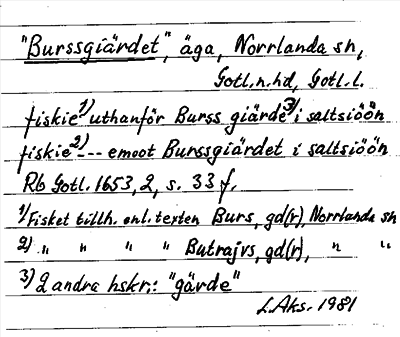 "Burssgiärdet", äga, Norrlanda sn,
Gotl.n.hd, Gotl.l.
fiskie 1) uthanför Burss giärde 3) i saltsiöön
fiskie 2) --- emoot Burssgiärdet i saltsiöön
Rb Gotl. 1653, 2, s. 33 f.
1) Fisket tillh. enl. texten Burs, gd(r), Norrlanda sn
2) " " " " Butrajvs, gd(r), " "
3) 2 andra hskr.: "gärde"
L.Aks. 1981